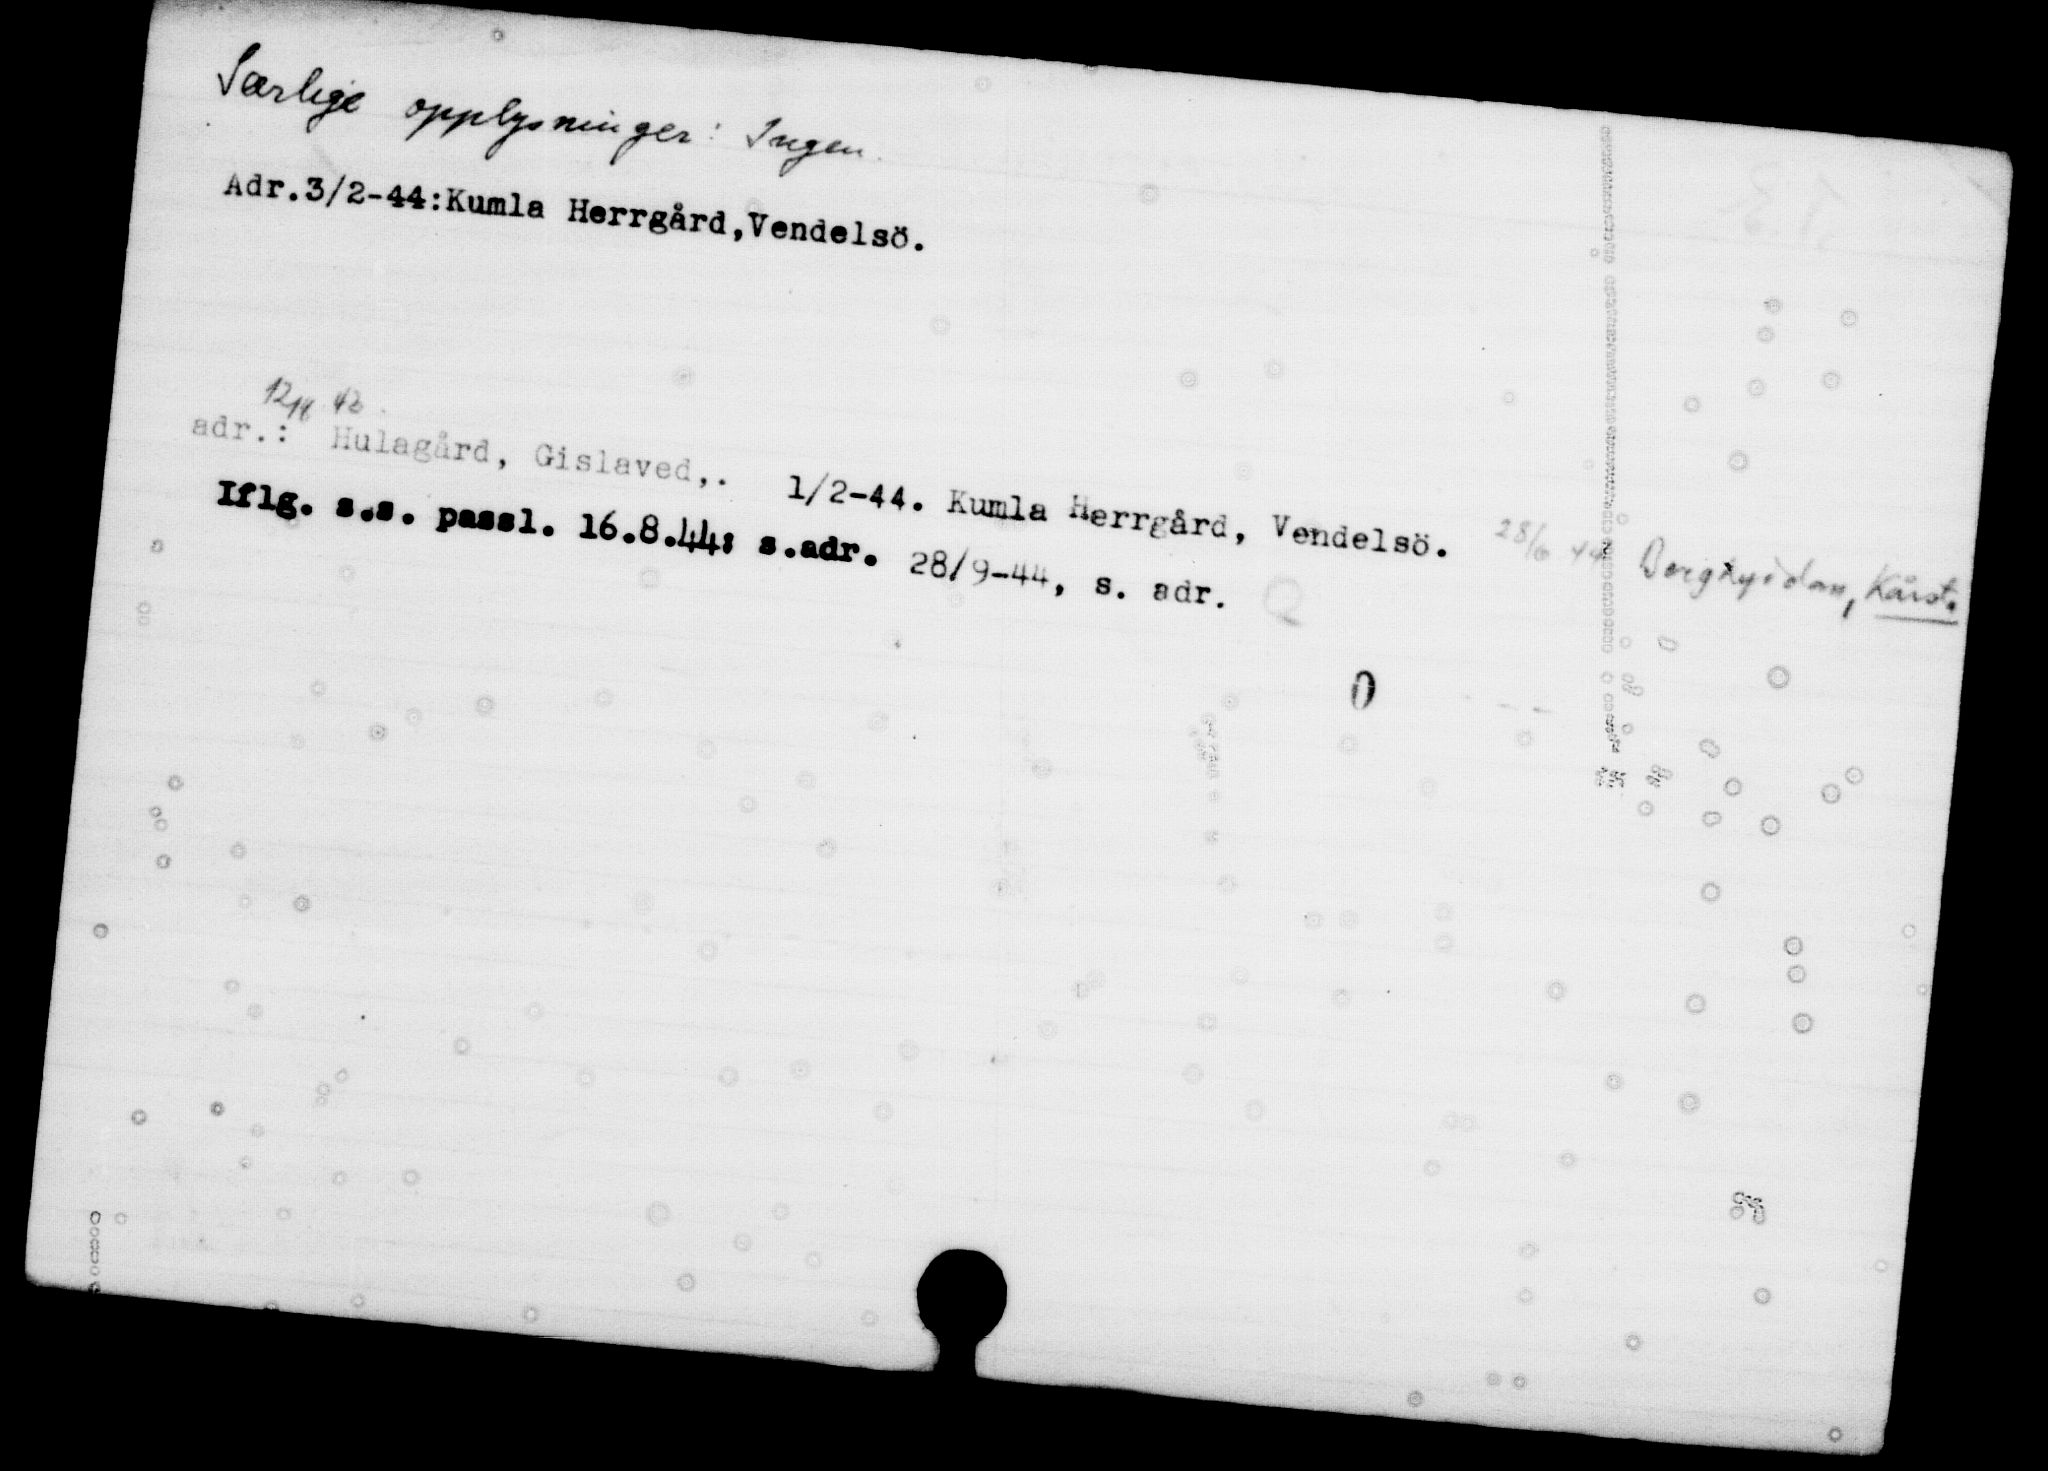 Særlige opplysninger: Ingen.
Adr.3/2-44:Kumla Herrgård,Vendelsö.
adr.: Hulagård, Gislaved,. 1/2-44. Kumla Herrgård, Vendelsö. 28/6 44 Berghyddan, Kårst.
Iflg. s.s. passl. 16.8.44: s.adr. 28/9-44, s. adr.
0